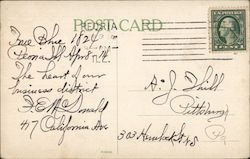 POST CARD
True Blue 1824
Peoria Ill Apr 8-14
The heart of our
business district
J E McDonald
417 California Ave
A. J. Thill
Pittsburg
303
Pa